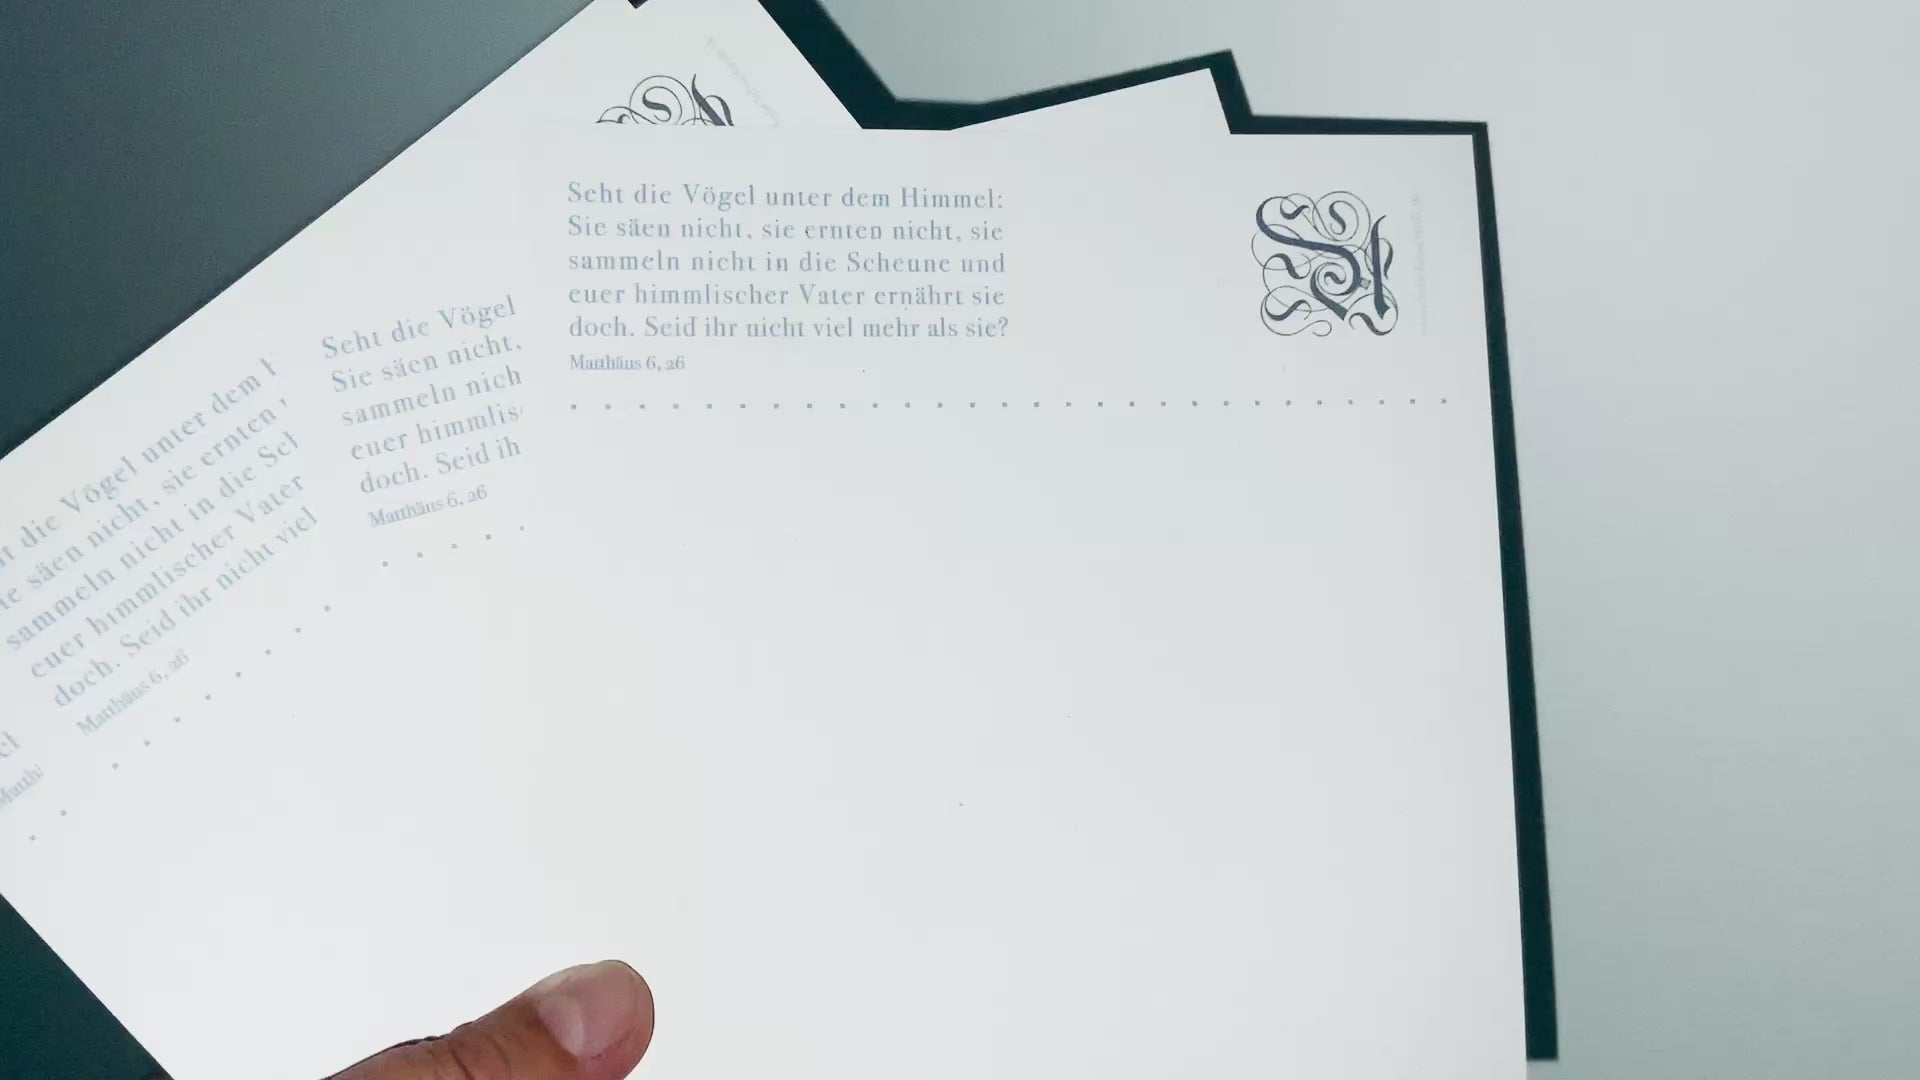 Seht die Vögel unter dem Himmel:
Sie säen nicht, sie ernten nicht, sie
sammeln nicht in die Scheune und
euer himmlischer Vater ernährt sie
doch. Seid ihr nicht viel mehr als sie?
Matthäus 6, 26
Seht die Vögel
Sie säen nicht,
sammeln nich
euer himmlis
doch. Seid ih
Matthäus 6, 26
die Vögel unter dem
säen nicht, sie ernten
sammeln nicht in die Sch
euer himmlischer Vater
doch. Seid ihr nicht viel
Matthäus 6, 26
Matthä